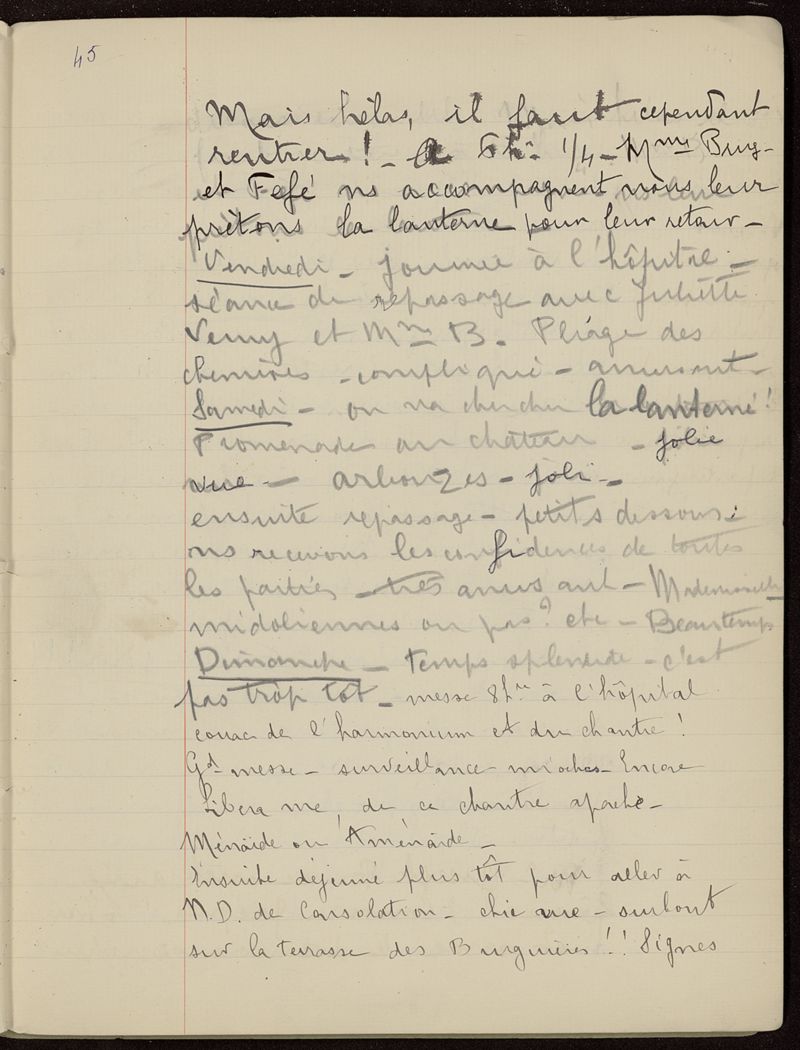 45
Mais hélas, il faut cependant
rentrer ! - A 6h. 1/4 - Mmes Burg-
et Féfé ns accompagnent nous leur
prêtons la lanterne pour leur retour -
Vendredi - journée à l'hôpital -
séance de repassage avec Juliette
Vemy et Mme B. Pliage des
chemises - compliqué - amusant -
Samedi - on va chercher la lanterne !
Promenade au château - jolie
vue - arbouzes - joli -
ensuite repassage - petits dessous :
ns recevons les confidences de toutes
les parties - très amusant - Mademoiselle
midoliennes ou pas ? etc - Beau temps
Dimanche - temps splendide - c'est
pas trop tôt - messe 8hres à l'hôpital
couac de l'harmonium et du chantre !
Gd messe - surveillance mioches - Encore
Libera me, de ce chantre apache -
Ménaïde ou Aménaïde -
Ensuite déjeuné plus tôt pour aller à
N.D. de Consolation - chic vue - surtout
sur la terrasse des Burguières !! Signes